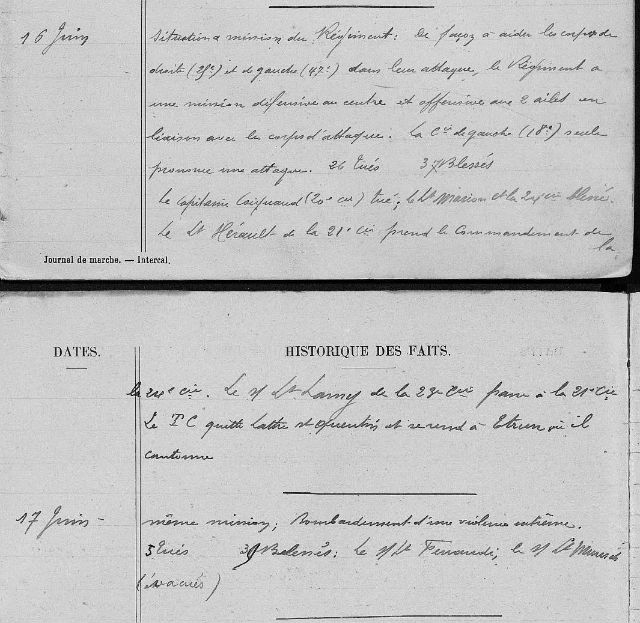 16 Juin
Situation & mission du Régiment : De façon à aider les corps de
droite ( ) et de gauche ( ) dans leur attaque, le Régiment a
une mission défensive au centre et offensive aux 2 ailes en
liaison avec les corps d'attaque. La Cie de gauche (18e) seule
prononce une attaque. 26 Tués 37 Blessés
Le Capitaine (20e Cie) tué ; le Lt Marion de la 24e Cie blessé.
Le Lt Hérault de la 21e Cie prend le Commandement de
la
Journal de marche. — Intercal.
DATES.
HISTORIQUE DES FAITS.
la 24e Cie. Le s/ Lt Lamy de la 23e Cie passe à la 21e Cie
Le T C quitte Lattre St Quentin et se rend à Etrun où il
cantonne
17 Juin -
même mission ; Bombardement d'une violence extrême.
5 Tués 39 Blessés : Le s/ Lt , le s/ Lt
(évacués)